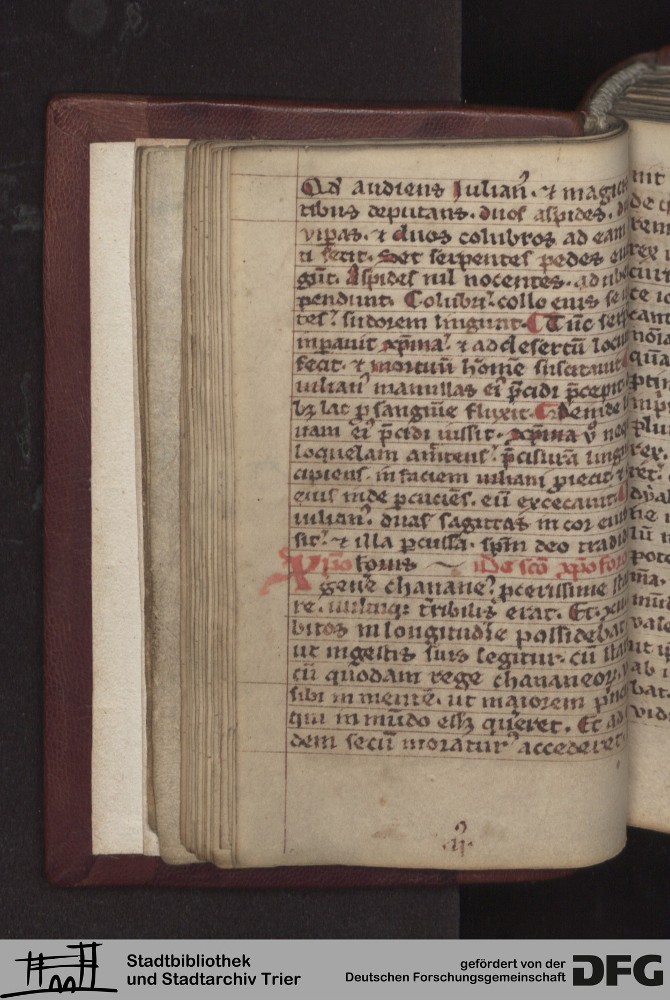 Qd' audiens Iulian'. ⁊ magic
tibus deputans. duos aspides. d
vipas. ⁊ duos colubros ad eam
ti fecit. Set serpentes pedes ei
gūt. Aspides nil nocentes. ad ube
pendunt. Colubri collo eius se
tes sudorem lingunt. Tūc ser
inpauit xpina ⁊ ad desertū locū
fecit. ⁊ mortuū hoīne suscitauit
iulian' mamillas ei' p̄cidi p̄cepit
bȝ lac p sanguine fluxit. Deinde
uam ei' p̄cidi iussit. xpina v̄ neq
loquelam amittens p̄cisurā lingu
cipiens. in faciem iuliani proiecit ⁊
eius inde pcuciēs. eū excecauit
iulian' duas sagittas in cor eius
sit ⁊ illa pcussa. spm deo tradi
Xpoforus De sco xpofor
gene chanane' pcerissime sta
re. uultuqȝ tribilis erat. Et. xii
bitos in longitudīe possidebat
ut in gestis suis legitur. cū sta
cū quodam rege chananeorum
sibi in mentē. ut maiorem prīc
qui in mūdo eēt quereret. Et ad
dem secū moratur' accederet
Stadtbibliothek
und Stadtarchiv Trier
gefördert von der
Deutschen Forschungsgemeinschaft
DFG